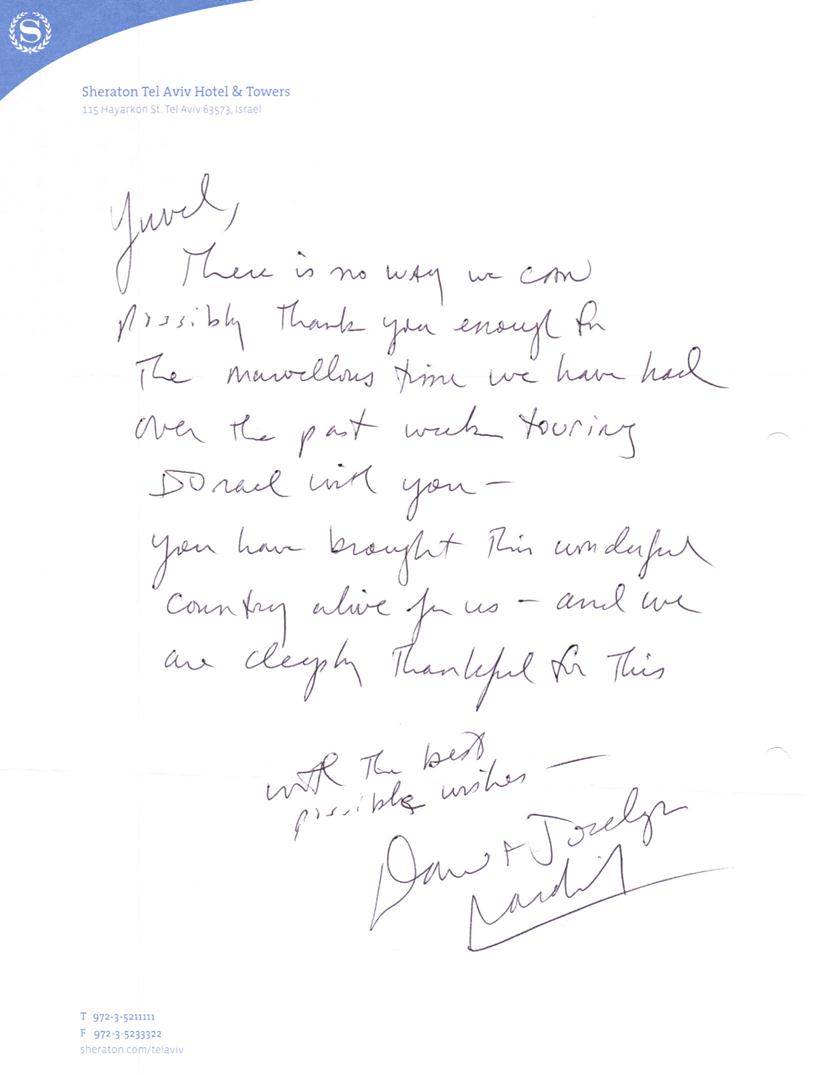 S
Sheraton Tel Aviv Hotel & Towers
115 Hayarkon St. Tel Aviv 63573, Israel
Yuval,
There is no way we can
possibly thank you enough for
the marvellous time we have had
over the past week touring
Israel with you —
you have brought this wonderful
country alive for us — and we
are deeply thankful for this
with the best
possible wishes —
& Jocelyn
T 972-3-5211111
F 972-3-5233322
sheraton.com/telaviv